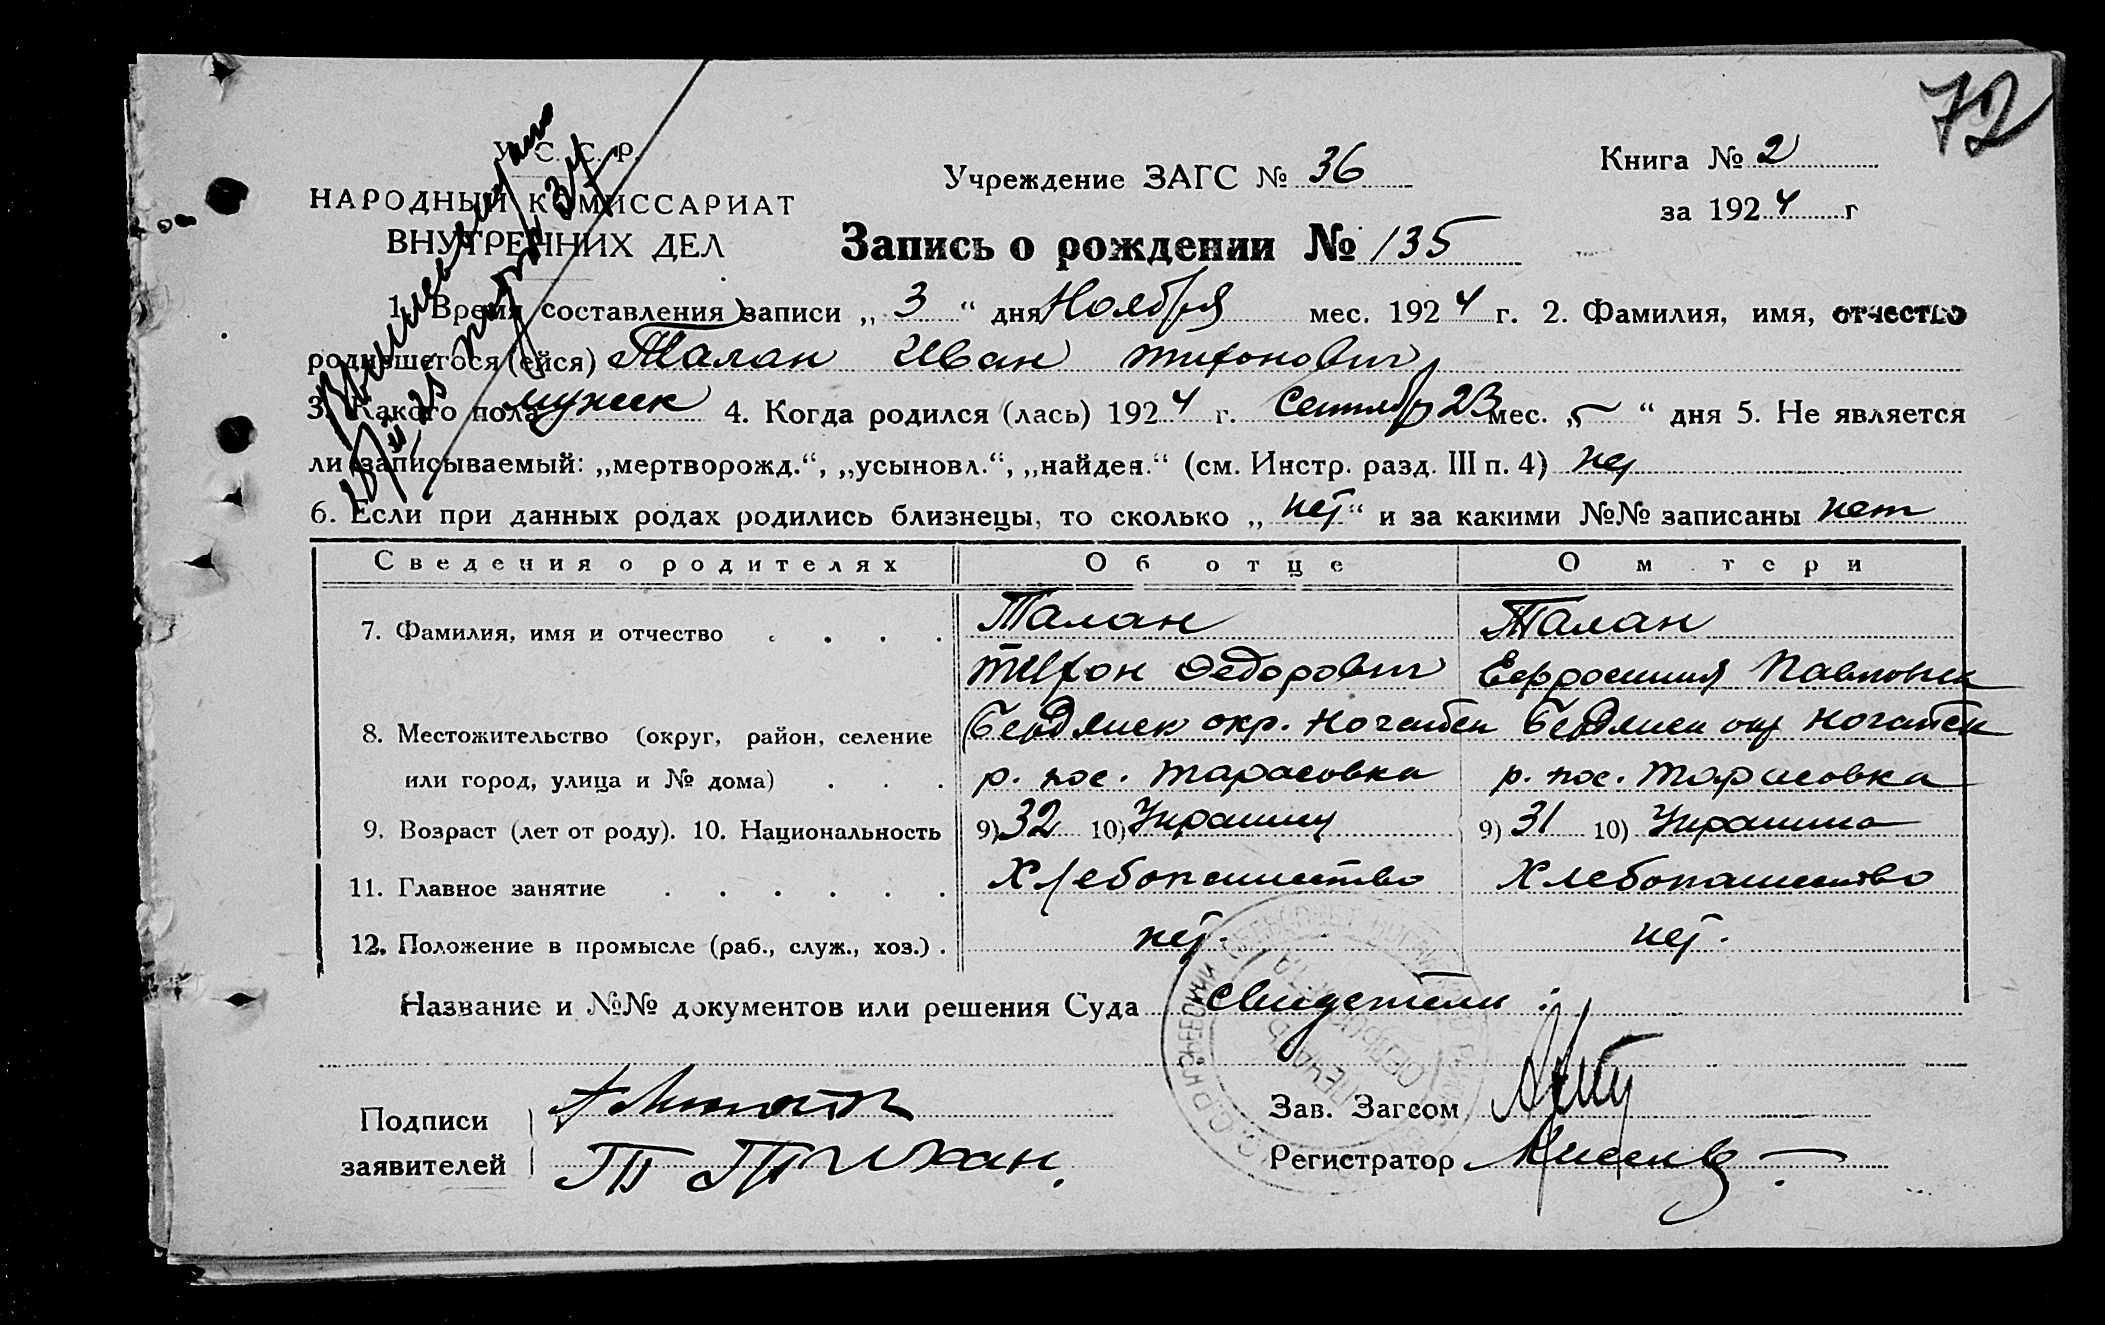 72
У. С. С. Р.
НАРОДНЫЙ КОМИССАРИАТ
ВНУТРЕННИХ ДЕЛ
Учреждение ЗАГС № 36
Книга № 2
за 1924 г
Запись о рождении № 135
1. Время составления записи „ 3 “ дня Ноября мес. 1924 г. 2. Фамилия, имя, отчество
родившегося (ейся) Талан Иван Тихонович
3. Какого пола мужск 4. Когда родился (лась) 1924 г. Сентябр 23 мес. „ 5 “ дня 5. Не является
ли записываемый: „мертворожд.“, „усыновл.“, „найден.“ (см. Инстр. разд. III п. 4) нет
6. Если при данных родах родились близнецы, то сколько „ нет “ и за какими №№ записаны нет
Сведения о родителях Об отце О м тери
7. Фамилия, имя и отчество Талан Талан
Тихон Федорович Ефросиния Павловна
8. Местожительство (округ, район, селение Бердянск окр. Ногайск Бердянск окр Ногайск
или город, улица и № дома) р. пос. Тарасовка р. пос. Тарасовка
9. Возраст (лет от роду). 10. Национальность 9) 32 10) Украинц 9) 31 10) Украинка
11. Главное занятие Хлебопашество Хлебопашество
12. Положение в промысле (раб., служ., хоз.) нет. нет.
Название и №№ документов или решения Суда свидетели:
Подписи
заявителей
Зав. Загсом
Регистратор